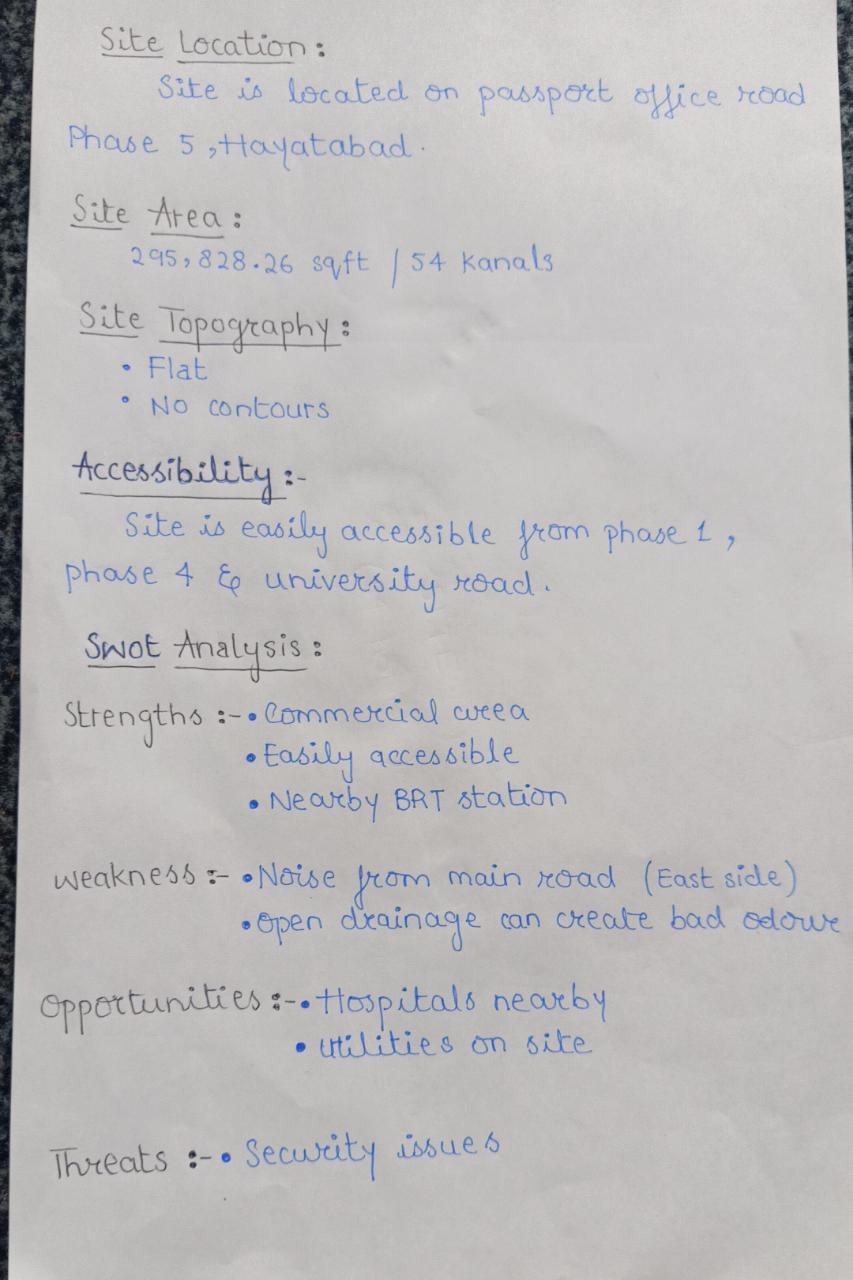 Site Location :
Site is located on passport office road
Phase 5 , Hayatabad .
Site Area :
295,828.26 sqft / 54 kanals
Site Topography :
• Flat
• No contours
Accessibility :-
Site is easily accessible from phase 1 ,
phase 4 & university road .
Swot Analysis :
Strengths :- • Commercial area
• Easily accessible
• Nearby BRT station
Weakness :- • Noise from main road (East side)
• Open drainage can create bad odour
Opportunities :- • Hospitals nearby
• Utilities on site
Threats :- • Security issues